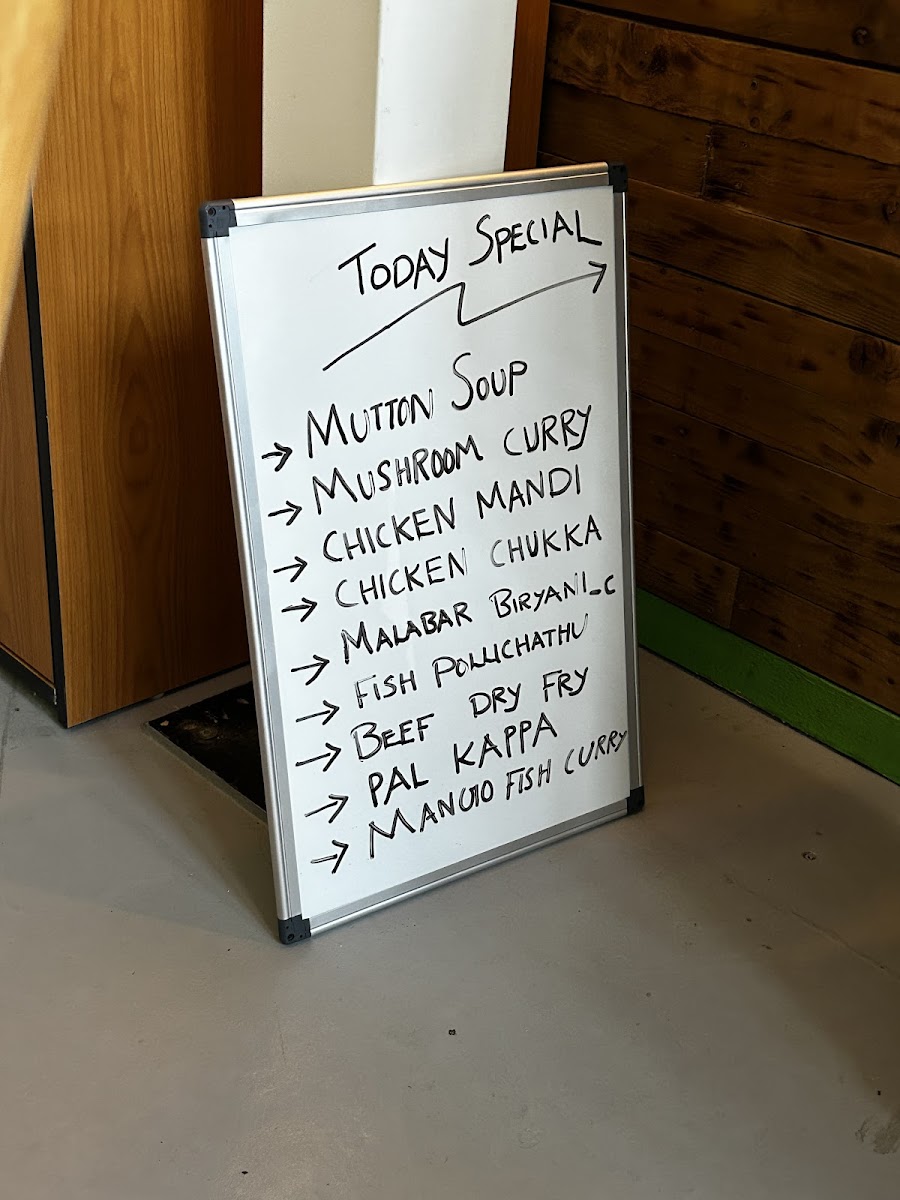 TODAY SPECIAL
→ MUTTON SOUP
→ MUSHROOM CURRY
→ CHICKEN MANDI
→ CHICKEN CHUKKA
→ MALABAR BIRYANI_C
→ FISH POLLICHATHU
→ BEEF DRY FRY
→ PAL KAPPA
→ MANGO FISH CURRY